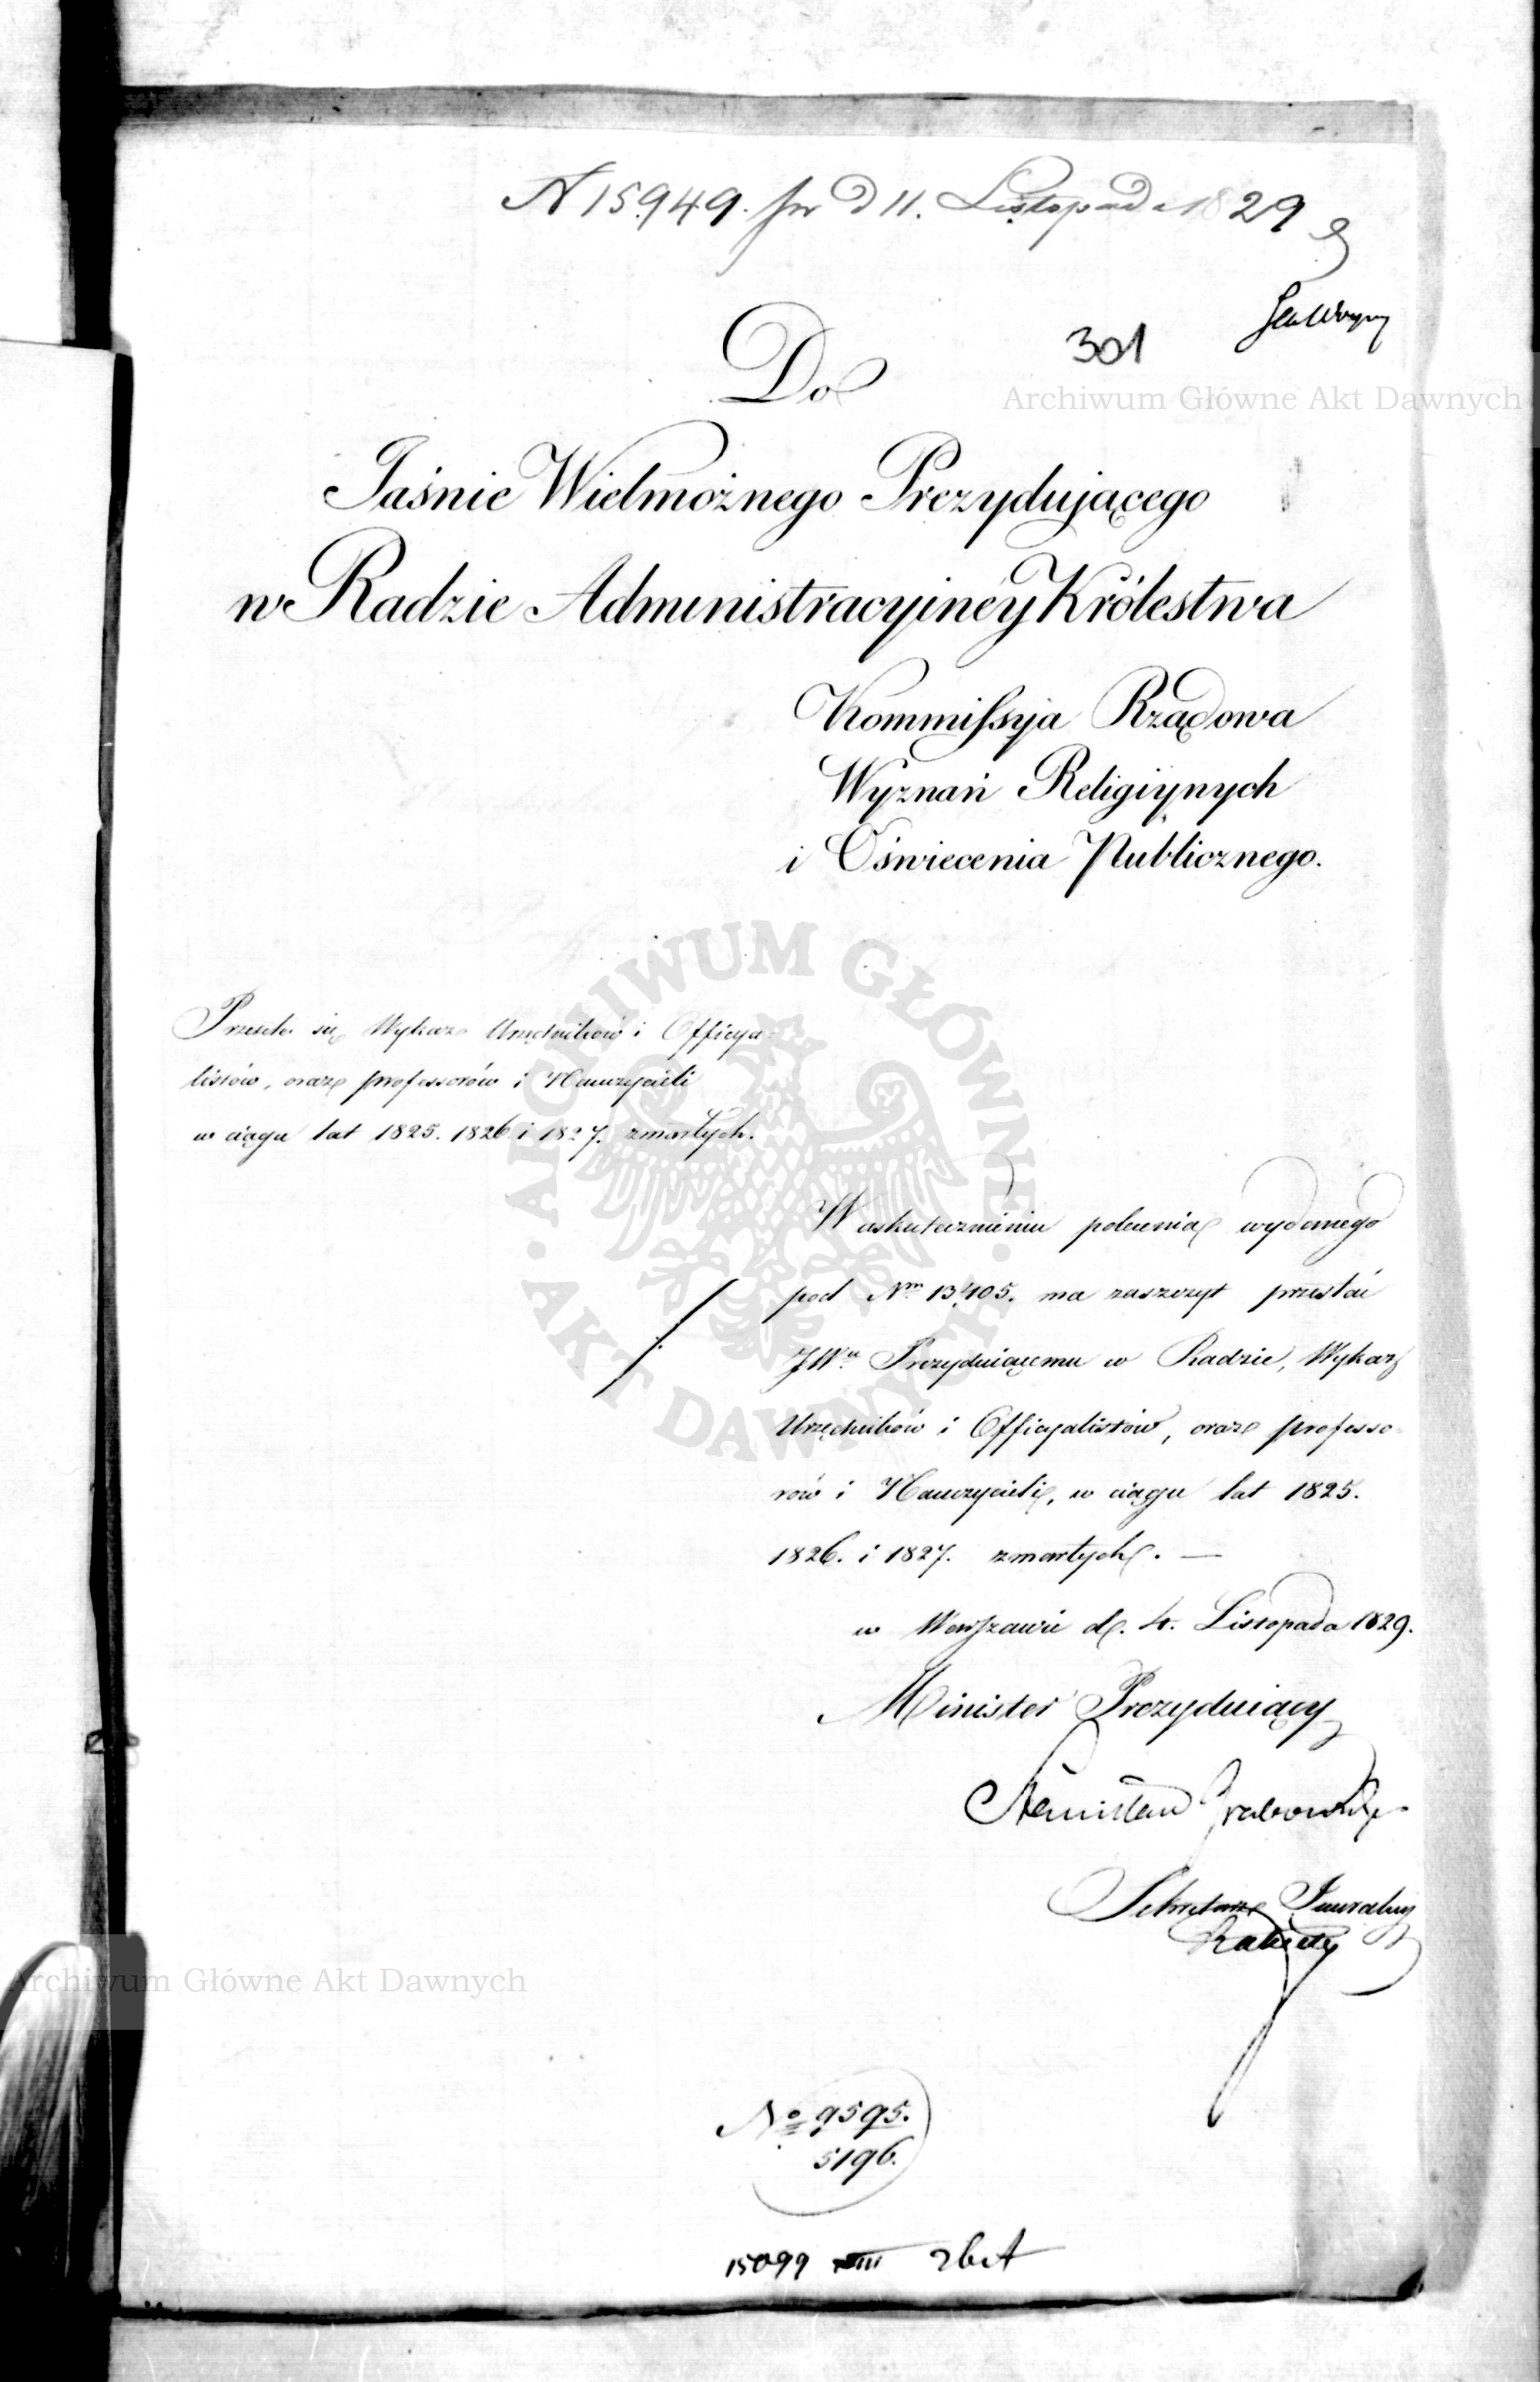 N 15949. pr d 11. Listopada 1829
301
Do
Jaśnie Wielmożnego Prezydującego
w Radzie Administracyinéy Królestwa
Kommissyja Rządowa
Wyznań Religiynych
i Oświecenia Publicznego.
Przesyła się Wykaz Urzędników i Officya-
listów, oraz professorów i Nauczycieli
w ciągu lat 1825. 1826 i 1827. zmarłych.
W uskutecznieniu polecenia wydanego
pod Nrm 13,405. ma zaszczyt przesłać
JWu Prezyduiącemu w Radzie, Wykaz
Urzędników i Officyalistów, oraz professo-
rów i Nauczycieli, w ciągu lat 1825.
1826. i 1827. zmarłych. —
w Warszawie d. 4. Listopada 1829.
Minister Prezyduiący
Stanisław Grabowski
Sekretarz Jeneralny
No 9595.
5196.
15099
Archiwum Główne Akt Dawnych
ARCHIWUM GŁÓWNE
AKT DAWNYCH
Archiwum Główne Akt Dawnych